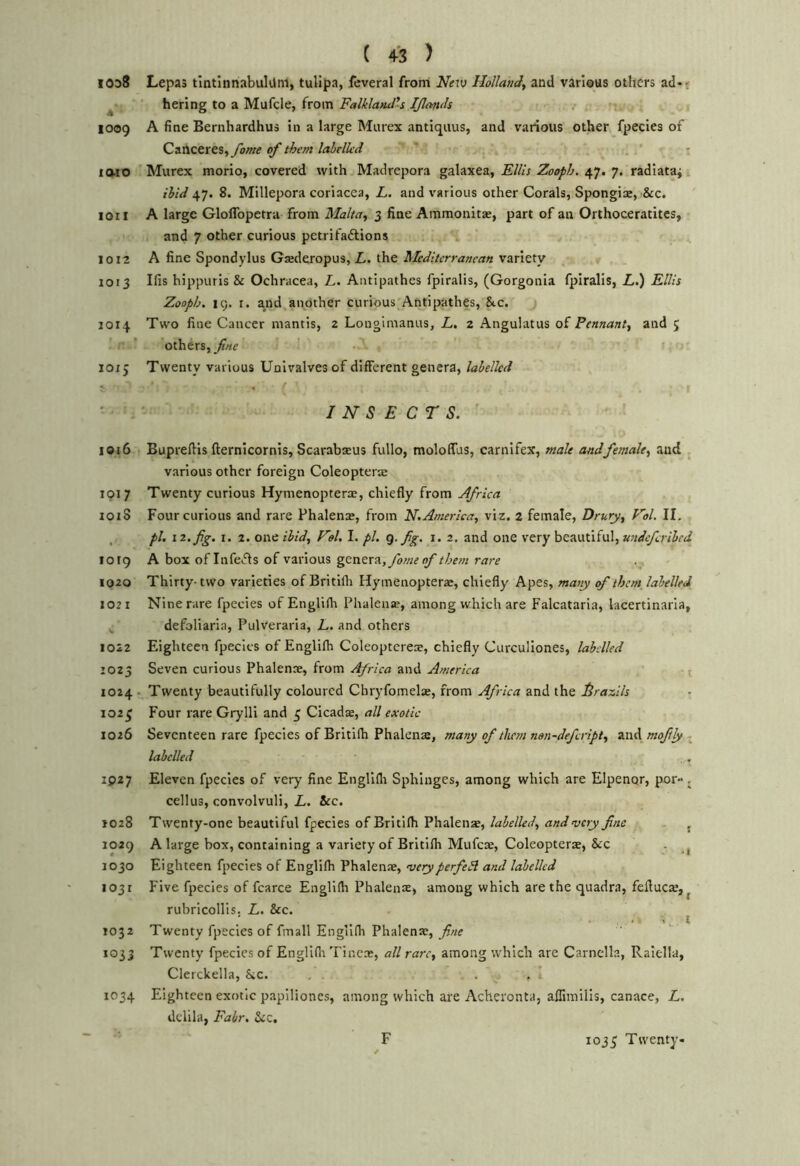 ( 43 )
1008 Lepas tintinnabulum, tulipa, ſeveral from New Holland, and various others ad-
hering to a Muſcle, from Falkland's Iſlands
1009 A fine Bernhardhus in a large Murex antiquus, and various other ſpecies of
Canceres, ſome of them labelled
1010 Murex morio, covered with Madrepora galaxea, Ellis Zooph. 47. 7. radiata,
ibid 47. 8. Millepora coriacea, L. and various other Corals, Spongiæ, &c.
1011 A large Gloſſopetra from Malta, 3 fine Ammonitæ, part of an Orthoceratites,
and 7 other curious petrifactions
1012 A fine Spondylus Gæderopus, L. the Mediterranean variety
1013 Iſis hippuris & Ochracea, L. Antipathes ſpiralis, (Gorgonia ſpiralis, L.) Ellis
Zooph. 19. 1. and another curious Antipathes, &c.
1014 Two fine Cancer mantis, 2 Longimanus, L. 2 Angulatus of Pennant, and 5
others, fine
1015 Twenty various Univalves of different genera, labelled
INSECTS.
1016 Bupreſtis ſternicornis, Scarabæus fullo, moloſſus, carnifex, male and female, and
various other foreign Coleopteræ
1017 Twenty curious Hymenopteræ, chiefly from Africa
1018 Four curious and rare Phalenæ, from N. America, viz. 2 female, Drury, Vol. II.
pl. 12. fig. 1. 2. one ibid, Vol. I. pl. 9. fig. 1. 2. and one very beautiful, undeſcribed
1019 A box of Inſects of various genera, ſome of them rare
1020 Thirty-two varieties of Britiſh Hymenopteræ, chiefly Apes, many of them labelled
1021 Nine rare ſpecies of Engliſh Phalenæ, among which are Falcataria, lacertinaria,
defoliaria, Pulveraria, L. and others
1022 Eighteen ſpecies of Engliſh Coleoptereæ, chiefly Curculiones, labelled
1023 Seven curious Phalenæ, from Africa and America
1024 Twenty beautifully coloured Chryſomelæ, from Africa and the Brazils
1025 Four rare Grylli and 5 Cicadæ, all exotic
1026 Seventeen rare ſpecies of Britiſh Phalenæ, many of them non-deſcript, and moſtly
labelled
1027 Eleven ſpecies of very fine Engliſh Sphinges, among which are Elpenor, por-
cellus, convolvuli, L. &c.
1028 Twenty-one beautiful ſpecies of Britiſh Phalenæ, labelled, and very fine
1029 A large box, containing a variety of Britiſh Muſcæ, Coleopteræ, &c
1030 Eighteen ſpecies of Engliſh Phalenæ, very perfect and labelled
1031 Five ſpecies of ſcarce Engliſh Phalenæ, among which are the quadra, feſtucæ,
rubricollis, L. &c.
1032 Twenty ſpecies of ſmall Engliſh Phalenæ, fine
1033 Twenty ſpecies of Engliſh Tineæ, all rare, among which are Carnella, Raiella,
Clerckella, &c.
1034 Eighteen exotic papiliones, among which are Acheronta, aſſimilis, canace, L.
delila, Fabr. &c.
F 1035 Twenty-